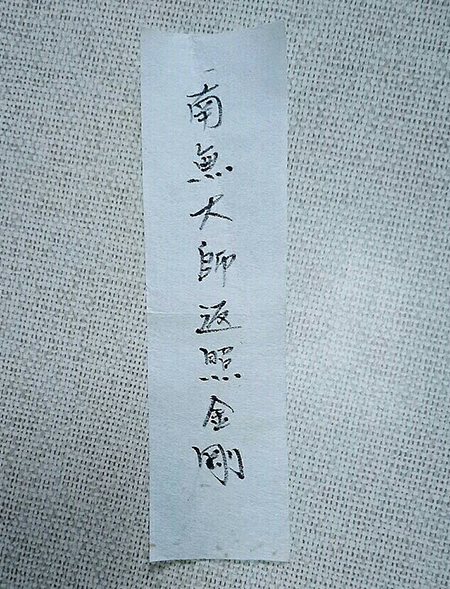 南無大師返照金剛